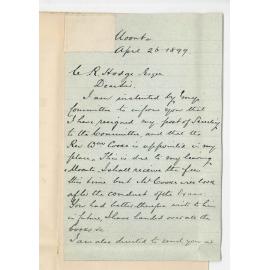 Moonta
April 26 1899
C R Hodge Esqre
Dear Sir.
I am instructed by my
Committee to inform you that
I have resigned my post of Secretary
to the Committee, and that the
Rev Wm Cooke is appointed in my
place. This is due to my leaving
Moonta. I shall receive the fees
this time but Mr Cooke will look
after the conduct of the Exam.
You had better therefore write to him
in future, I have handed over all the
books &c
I am also directed to send you